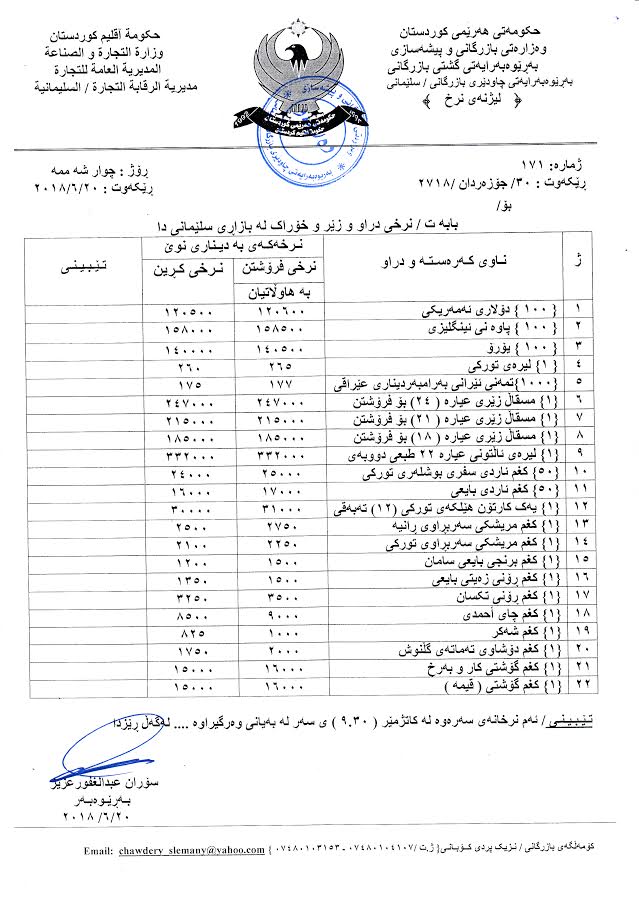 حکومەتی هەرێمی کوردستان
وەزارەتی بازرگانی و پیشەسازی
بەڕێوەبەرایەتی گشتی بازرگانی
بەڕێوەبەرایەتی چاودێری بازرگانی / سلێمانی
﴿ لیژنەی نرخ ﴾
حكومة أقليم كوردستان
وزارة التجارة و الصناعة
المديرية العامة للتجارة
مديرية الرقابة التجارة / السليمانية
حکومەتی هەرێمی کوردستان
حكومة اقليم كوردستان
1992
ژمارە: ١٧١
ڕێکەوت : ٣٠/ جۆزەردان /٢٧١٨
ڕۆژ : چوار شە ممە
ڕێکەوت : ٢٠١٨/٦/٢٠
بۆ/
بابە ت / نرخی دراو و زێر و خۆراک لە بازاڕی سلێمانی دا
ژ ناوی کەرەستە و دراو نرخەکەی بە دیناری نوێ تێبینی
نرخی فرۆشتن بە هاوڵاتیان نرخی کڕین
١ { ١٠٠ } دۆلاری ئەمەریکی ١٢٠٦٠٠ ١٢٠٥٠٠
٢ { ١٠٠ } پاوە نی ئینگلیزی ١٥٨٥٠٠ ١٥٨٠٠٠
٣ { ١٠٠ } یۆرۆ ١٤٠٥٠٠ ١٤٠٠٠٠
٤ { ١} لیرەی تورکی ٢٦٥ ٢٦٠
٥ {١٠٠٠}تمەنی ئێرانی بەرامبەردیناری عێراقی ١٧٧ ١٧٥
٦ {١} مسقاڵ زێری عیارە ( ٢٤) بۆ فرۆشتن ٢٤٧٠٠٠ ٢٤٧٠٠٠
٧ {١} مسقاڵ زێری عیارە ( ٢١) بۆ فرۆشتن ٢١٥٠٠٠ ٢١٥٠٠٠
٨ {١} مسقاڵ زێری عیارە ( ١٨) بۆ فرۆشتن ١٨٥٠٠٠ ١٨٥٠٠٠
٩ {١} لیرەی ئاڵتونی عیارە ٢٢ طبعی دووبەی ٣٣٢٠٠٠ ٣٣٢٠٠٠
١٠ {٥٠} کغم ئاردی سفری بوشلەری تورکی ٢٥٠٠٠ ٢٤٠٠٠
١١ {٥٠} کغم ئاردی بایعی ١٧٠٠٠ ١٦٠٠٠
١٢ {١} یەک کارتۆن هێلکەی تورکی (١٢) تەبەقی ٣١٠٠٠ ٣٠٠٠٠
١٣ {١} کغم مریشکی سەربڕاوی ڕانیە ٢٧٥٠ ٢٥٠٠
١٤ {١} کغم مریشکی سەربڕاوی تورکی ٢٢٥٠ ٢١٠٠
١٥ {١} کغم برنجی بایعی سامان ١٥٠٠ ١٢٠٠
١٦ {١} کغم ڕۆنی زەیتی بایعی ١٥٠٠ ١٣٥٠
١٧ {١} کغم ڕۆنی تکسان ٣٥٠٠ ٣٢٥٠
١٨ {١} کغم چای أحمدی ٩٠٠٠ ٨٥٠٠
١٩ {١} کغم شەکر ١٠٠٠ ٨٢٥
٢٠ {١} کغم دۆشاوی تەماتەی گڵنوش ٢٠٠٠ ١٧٥٠
٢١ {١} کغم گۆشتی کار و بەرخ ١٦٠٠٠ ١٥٠٠٠
٢٢ {١} کغم گۆشتی ( قیمە ) ١٦٠٠٠ ١٥٠٠٠
تێبینی / ئەم نرخانەی سەرەوە لە کاتژمێر ( ٩.٣٠ ) ی سەر لە بەیانی وەرگیراوە .... لەگەڵ ڕێزدا
سۆران عبدالغفورعزیز
بەڕێوەبەر
٢٠١٨/٦/٢٠
کۆمەڵگەی بازرگانی / نزیک پردی کۆبانی{ ژ.ت /٠٧٤٨٠١٠٤١٠٧ - ٠٧٤٨٠١٠٣١٥٣ } Email: chawdery_slemany@yahoo.com